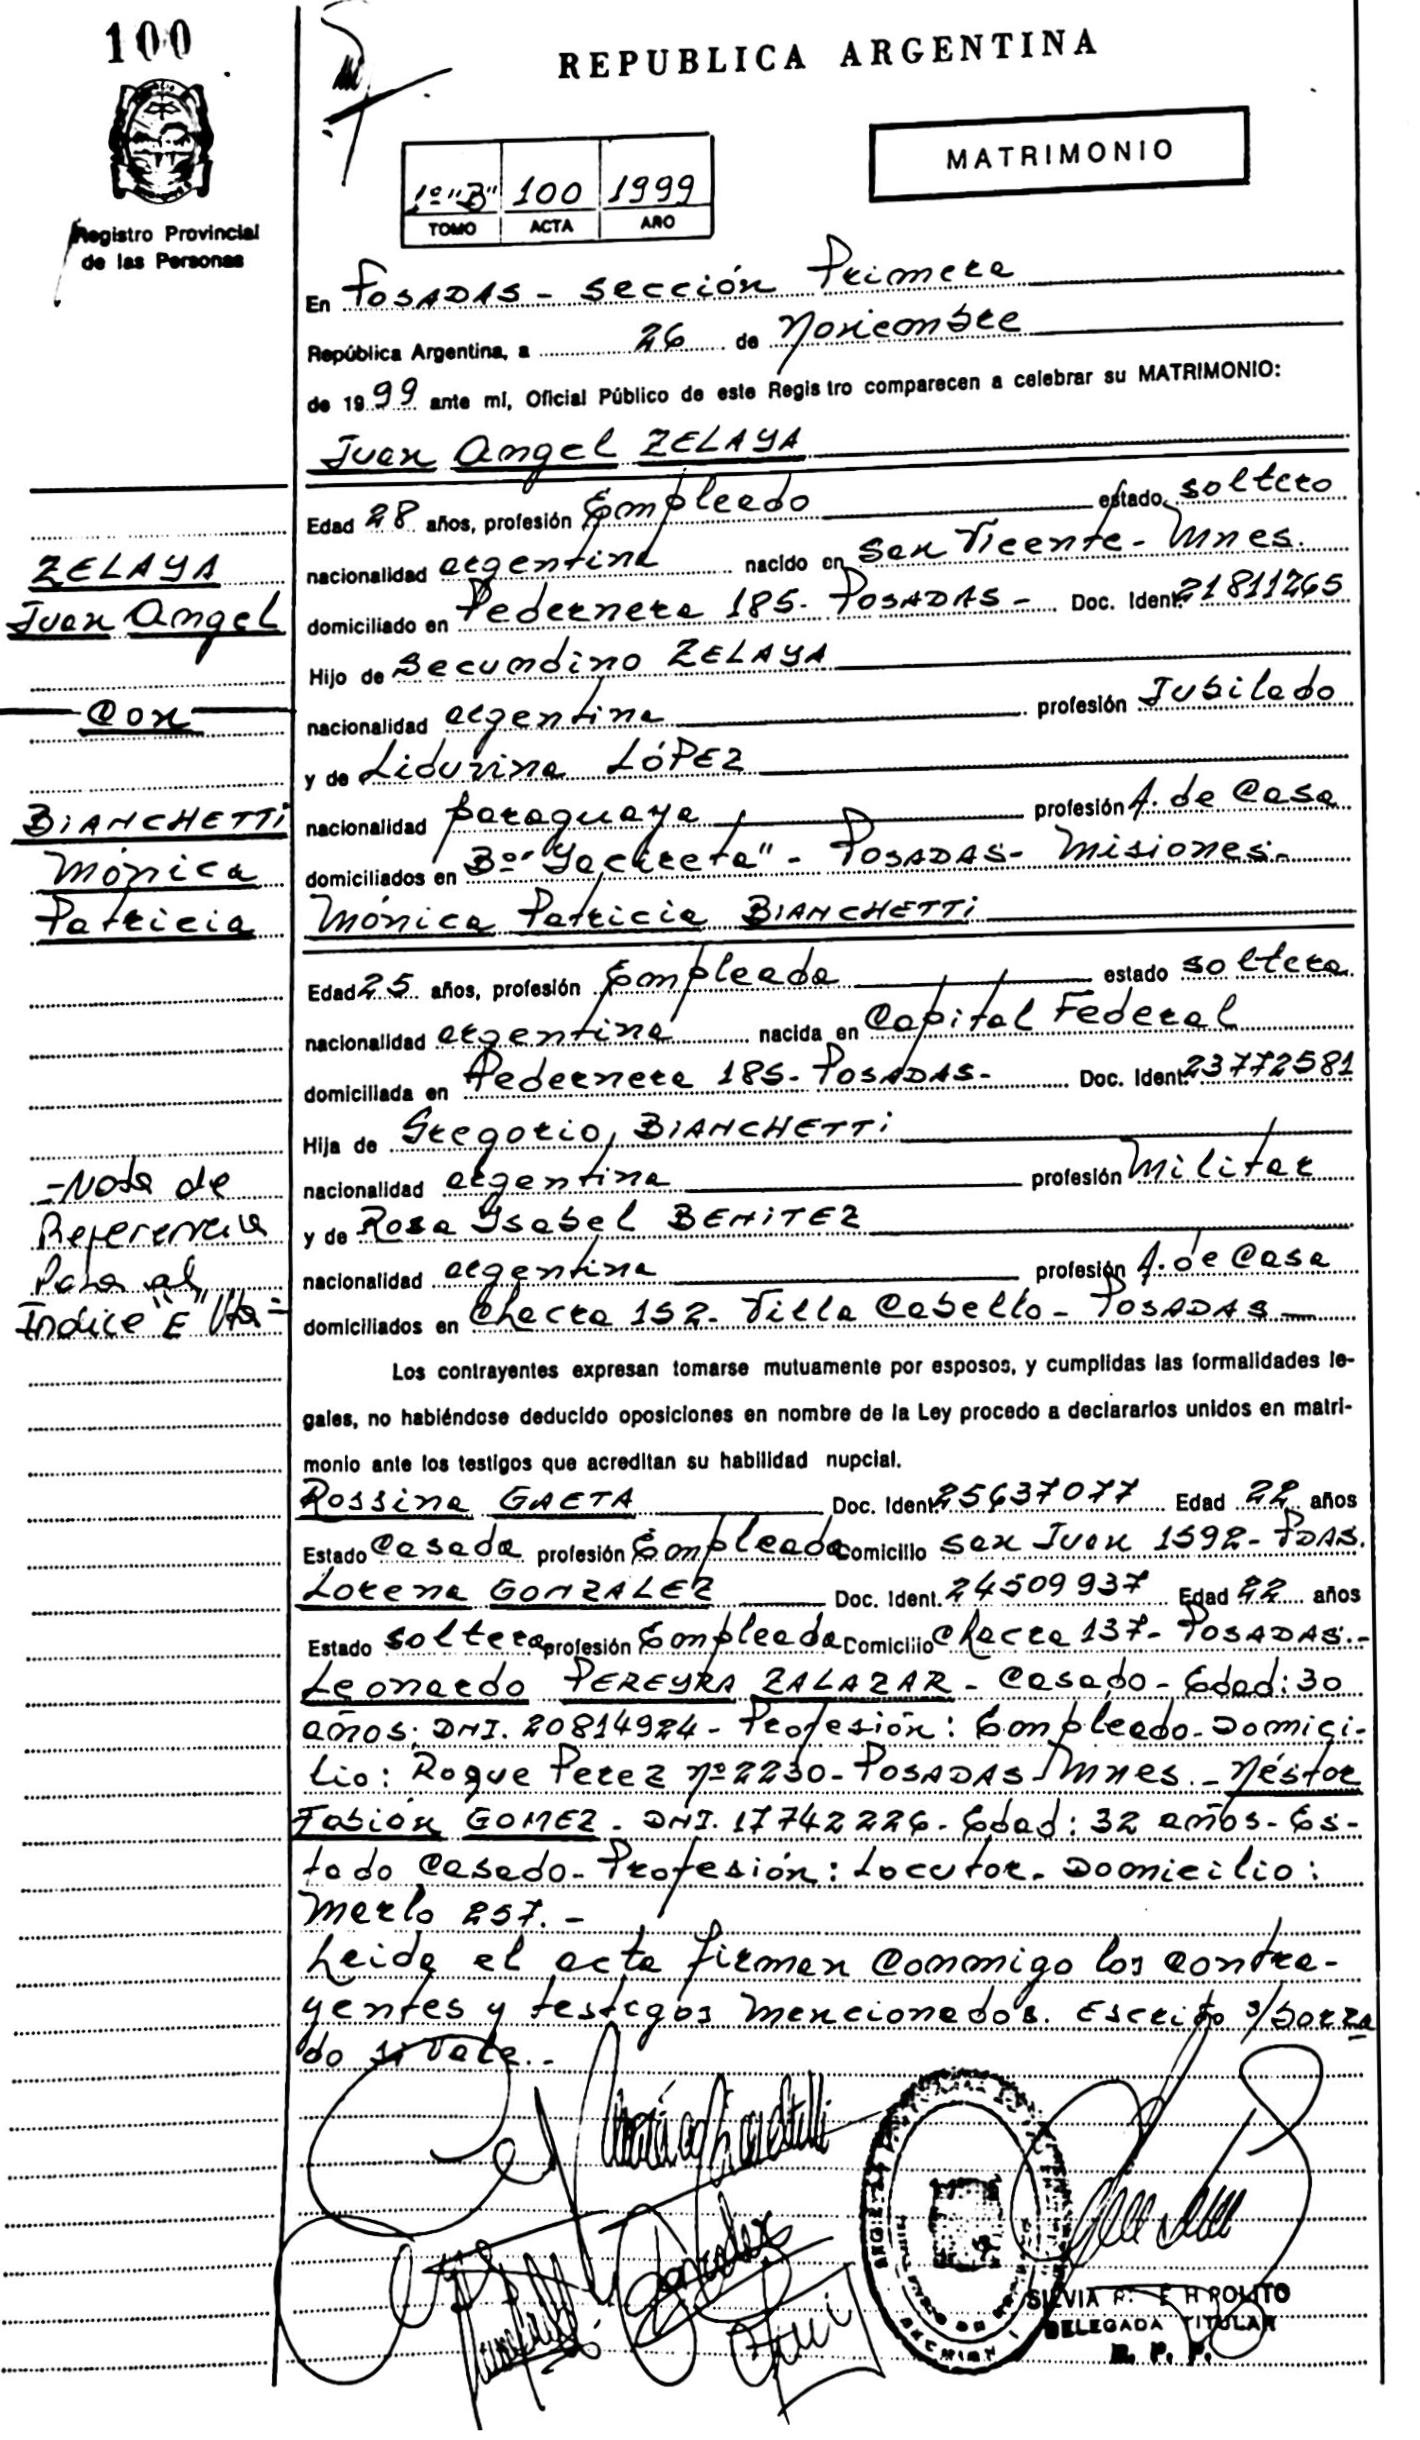 100
REPUBLICA ARGENTINA
MATRIMONIO
1º "B" 100 1999
TOMO ACTA AÑO
Registro Provincial
de las Personas
En POSADAS - Sección Primera
República Argentina, a 26 de Noviembre
de 1999 ante mí, Oficial Público de este Registro comparecen a celebrar su MATRIMONIO:
Juan Angel ZELAYA
Edad 28 años, profesión Empleado estado soltero
nacionalidad argentina nacido en San Vicente - Mnes.
domiciliado en Pedernera 185 - POSADAS - Doc. Ident. 21811265
Hijo de Secundino ZELAYA
nacionalidad argentina profesión Jubilado
y de Liduvina LÓPEZ
nacionalidad paraguaya profesión A. de Casa
domiciliados en Bº "Yacireta" - POSADAS - Misiones -
Mónica Patricia BIANCHETTI
Edad 25 años, profesión Empleada estado soltera
nacionalidad argentina nacida en Capital Federal
domiciliada en Pedernera 185 - POSADAS - Doc. Ident. 23772581
Hija de Gregorio BIANCHETTI
nacionalidad argentina profesión Militar
y de Rosa Ysabel BENITEZ
nacionalidad argentina profesión A. de Casa
domiciliados en Chacra 152 - Villa Cabello - POSADAS -
ZELAYA
Juan Angel
Con
BIANCHETTI
Mónica
Patricia
- Nota de
Referencia
Pasa al
Indice "E" Vta =
Los contrayentes expresan tomarse mutuamente por esposos, y cumplidas las formalidades le-
gales, no habiéndose deducido oposiciones en nombre de la Ley procedo a declararlos unidos en matri-
monio ante los testigos que acreditan su habilidad nupcial.
Rossina GAETA Doc. Ident. 25637077 Edad 22 años
Estado Casada profesión Empleada Domicilio San Juan 1592 - PDAS.
Lorena GONZALEZ Doc. Ident. 24509937 Edad 22 años
Estado soltera profesión Empleada Domicilio Chacra 137 - POSADAS. -
Leonardo PEREYRA ZALAZAR - Casado - Edad: 30
años; DNI. 20814924 - Profesión: Empleado - Domici-
lio: Roque Perez Nº 2230 - POSADAS - Mnes. - Néstor
Fabián GOMEZ - DNI. 17742226 - Edad: 32 años - Es-
tado Casado - Profesión: Locutor - Domicilio:
Merlo 257. -
Leida el acta firman conmigo los contra-
yentes y testigos mencionados. Escrito s/borra
do si Vale. -
SILVIA HIPOLITO
DELEGADA TITULAR
R. P. P.